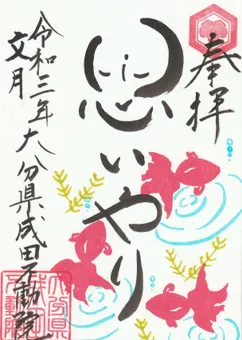 奉拝
思いやり
令和三年大分県成田不動院
文月
大分県
不動院